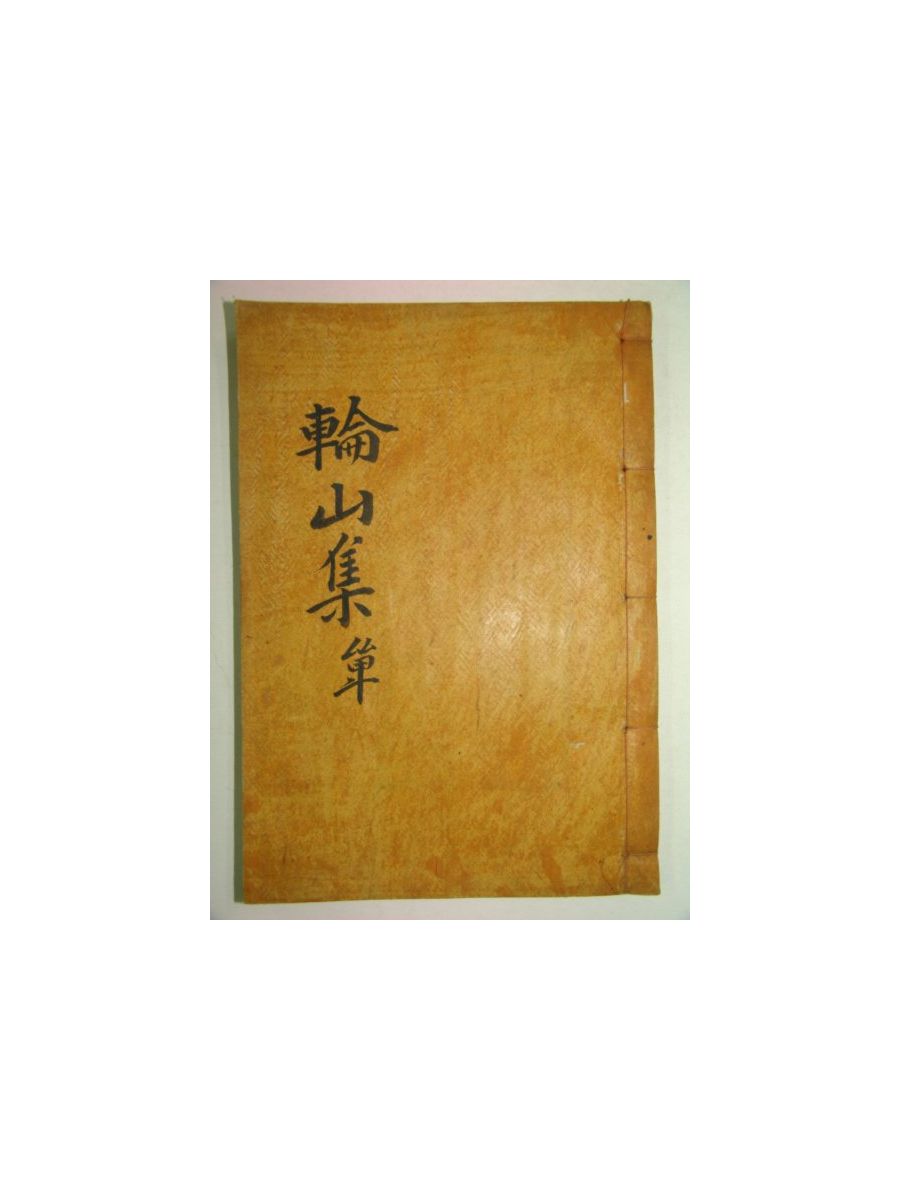 輪山集 單